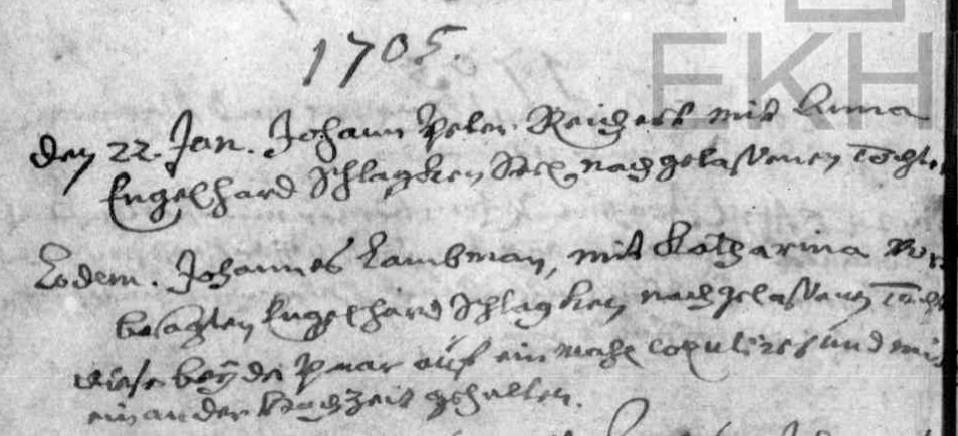 1705.
EKH
den 22. Jan. Johann Peter Reichert mit Anna
Engelhard Schlagken Seel. nachgelassenen Tochter
Eodem. Johannes Lambman, mit Katharina
besagten Engelhard Schlagken nachgelassenen Tocht
diese beyde paar auf ein mahl copulirt und mit
einander Hochzeit gehalten.